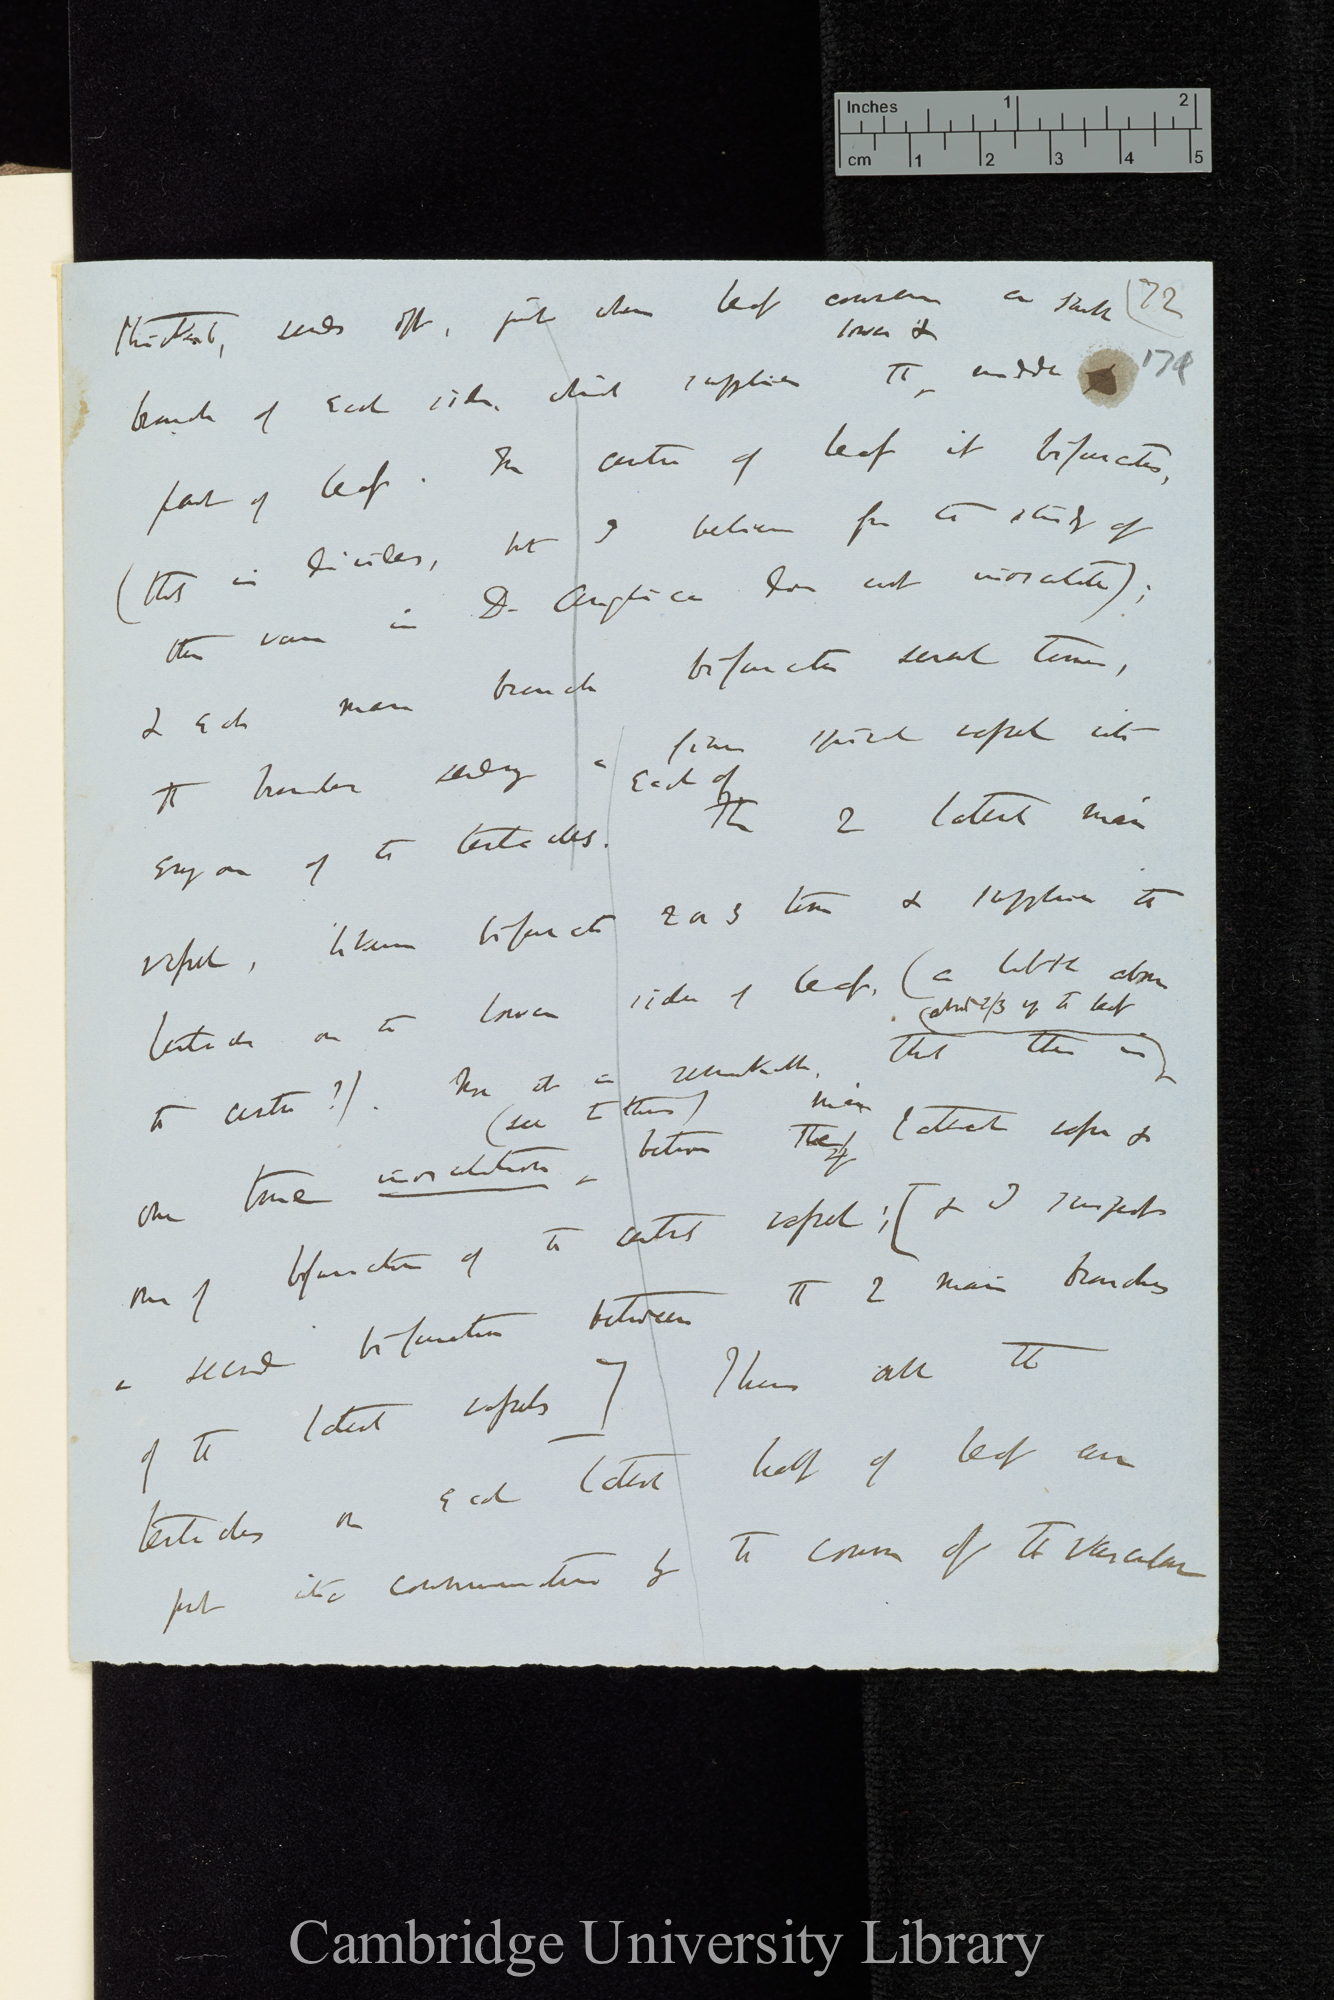 Inches 1 2
cm 1 2 3 4 5
(72
174
thickest, sends off, just where leaf commences a small
lower &
branch of each side, which supplies the middle
part of leaf. In centre of leaf it bifurcates,
(this is divides, but I believe from the study of
this vein in D. Anglica does not inosculate);
& each main branch bifurcates several times,
the branches sending a fine spiral vessel into
Each of
every one of the tentacles. The 2 lateral main
vessel, likewise bifurcate 2 or 3 times & supplies the
tentacles on the lower sides of leaf, (a little above
(about 2/3 up the leaf
the centre?). Now it is remarkable, that there is
(see to this) main
one true inosculation, between the lateral vessel &
one of bifurcation of the central vessel; [& I suspect
a second bifurcation between the 2 main branches
of the lateral vessels] Thus all the
tentacles on each lateral half of leaf are
put into communication by the course of the vascular
Cambridge University Library